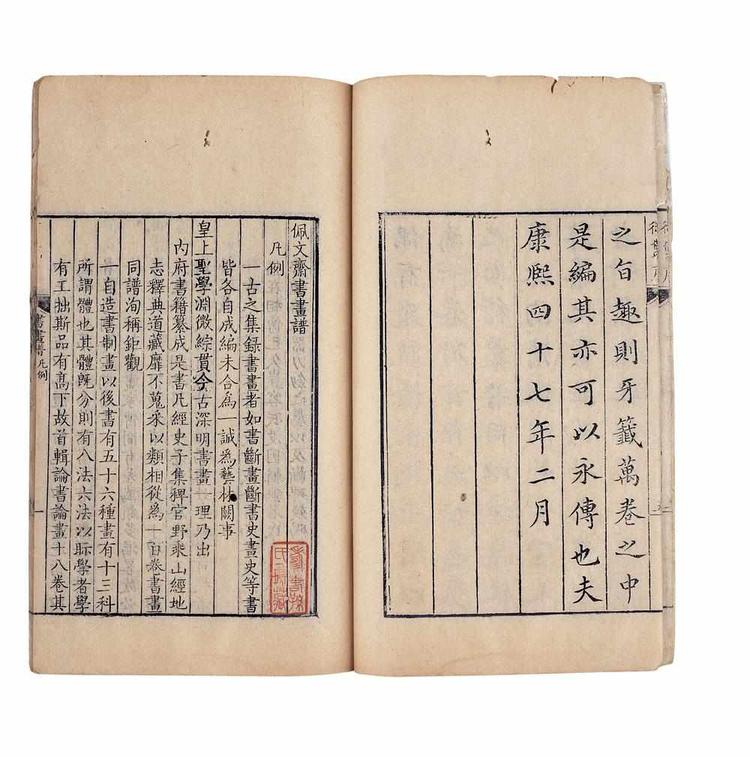 之旨趣則牙籤萬卷之中
是編其亦可以永傳也夫
康熙四十七年二月
佩文齋書畫譜
凡例
一古之集録書畫者如書斷畫斷書史畫史等書
皆各自成編未合為一誠為藝林闕事
皇上聖學淵微綜貫今古深明書畫一理乃出
內府書籍纂成是書凡經史子集稗官野乘山經地
志釋典道藏靡不蒐采以類相從為一百卷書畫
同譜洵稱鉅觀
一自造書制畫以後書有五十六種畫有十三科
所謂體也其體既分則有八法六法以眎學者學
有工拙斯品有高下故首輯論書論畫十八卷其
書畫譜凡例
一